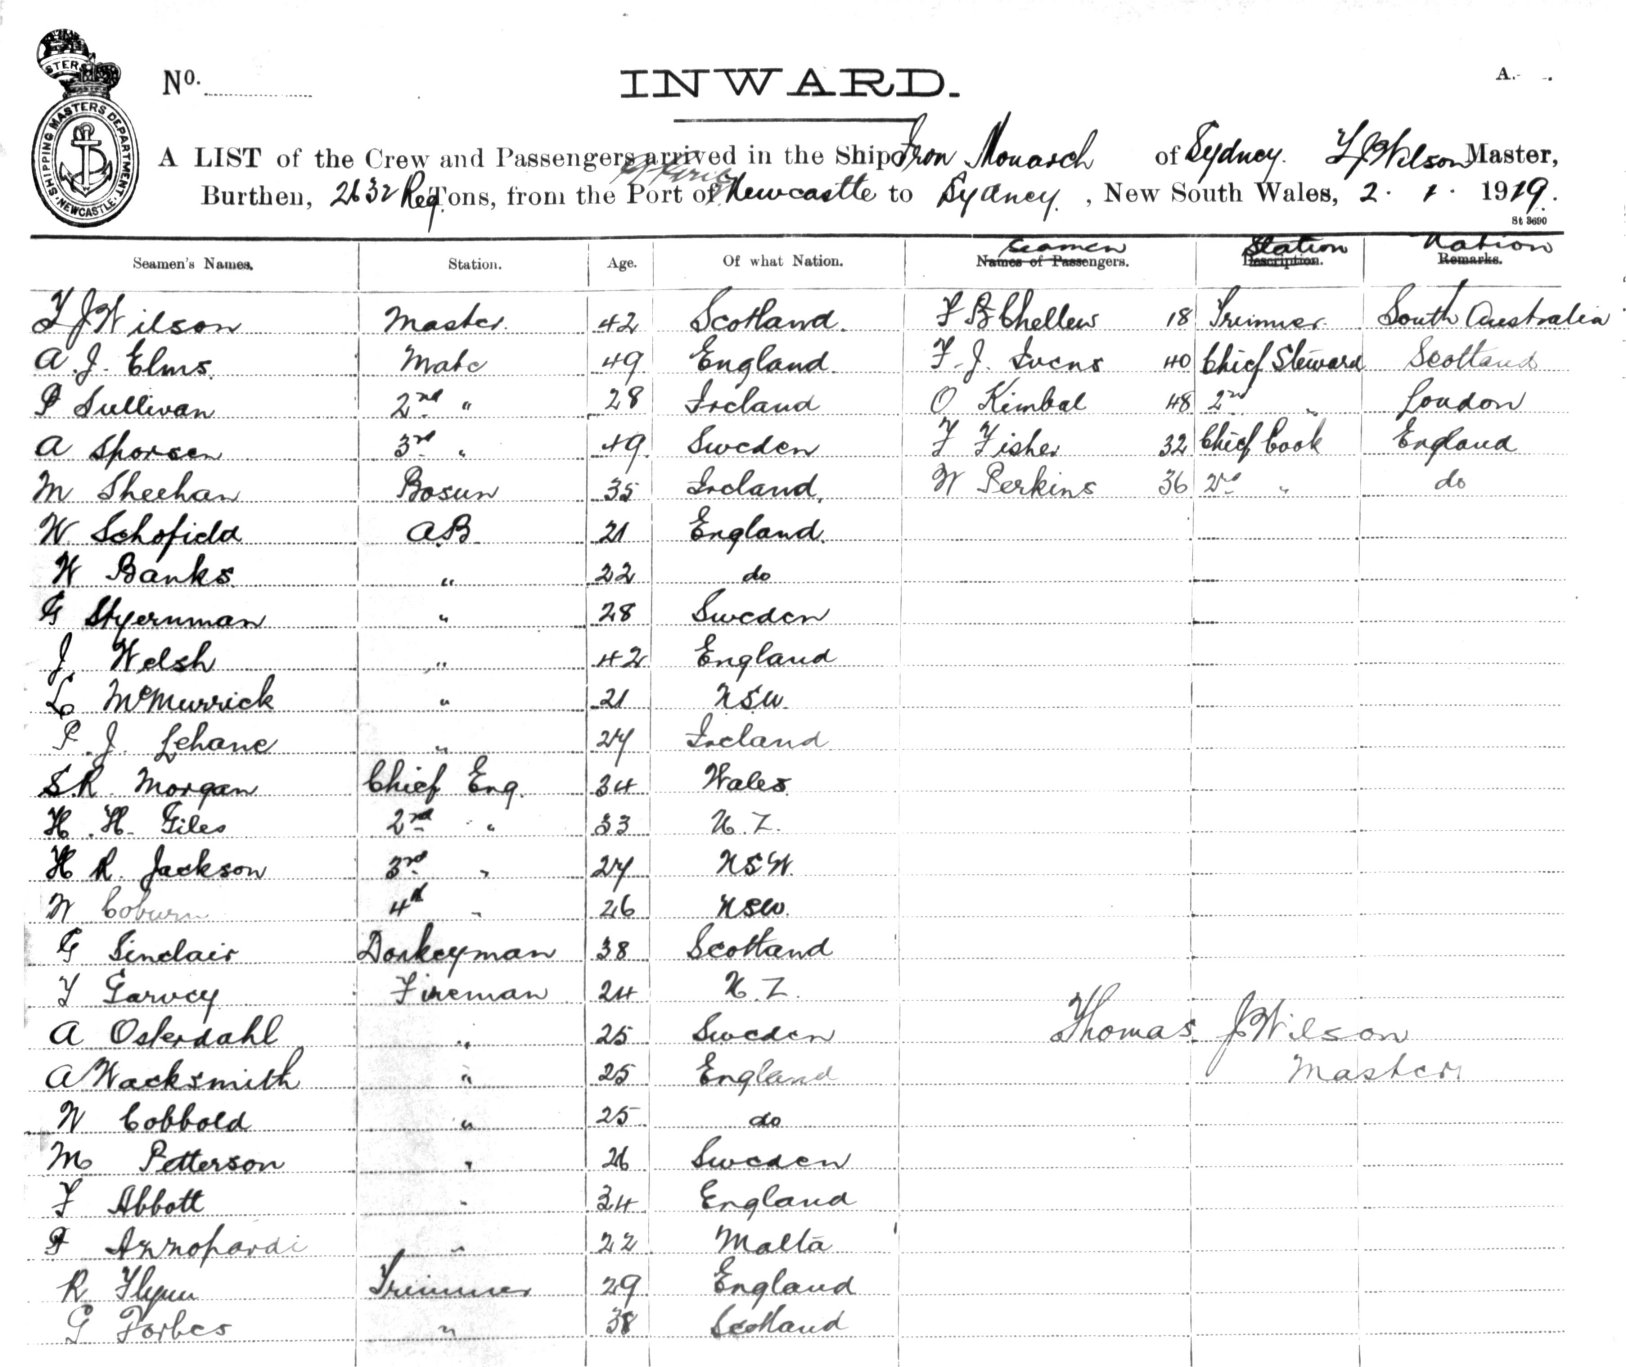 No.
INWARD.
A.
SHIPPING MASTERS DEPARTMENT
NEWCASTLE
A LIST of the Crew and Passengers arrived in the Ship Iron Monarch of Sydney. T J Wilson Master,
Burthen, 2632 Reg Tons, from the Port of Newcastle to Sydney, New South Wales, 2. 1. 1919.
St 3690
Seamen's Names. Station. Age. Of what Nation. Seamen Names of Passengers. Station Description. Nation Remarks.
T J Wilson Master. 42 Scotland. F B Chellew 18 Trimmer South Australia
A. J. Elms. Mate 49 England. F. J. Ivens 40 Chief Steward Scotland
P Sullivan 2nd " 28 Ireland O Kimbal 48 2nd " London
A Sporsen 3rd " 49 Sweden F Fisher 32 Chief Cook England
M Sheehan Bosun 35 Ireland. W Perkins 36 2nd " do
W Schofield A.B. 21 England.
W Banks " 22 do
G Styernman " 28 Sweden
J. Welsh " 42 England
L McMurrick " 21 NSW.
P. J. Lehane " 27 Ireland
S.R. Morgan Chief Eng. 34 Wales
H. H. Giles 2nd " 33 N.Z.
H R. Jackson 3rd " 27 NSW
W Coburn 4th " 26 NSW.
G Sinclair Donkeyman 38 Scotland
T Garvey Fireman 24 N.Z.
A Osterdahl " 25 Sweden
Thomas J Wilson
A Wacksmith " 25 England
Master
W Cobbold " 25 do
M Petterson " 26 Sweden
F Abbott " 34 England
F Azzopardi " 22 Malta
R Flynn Trimmer 29 England
G Forbes " 38 Scotland